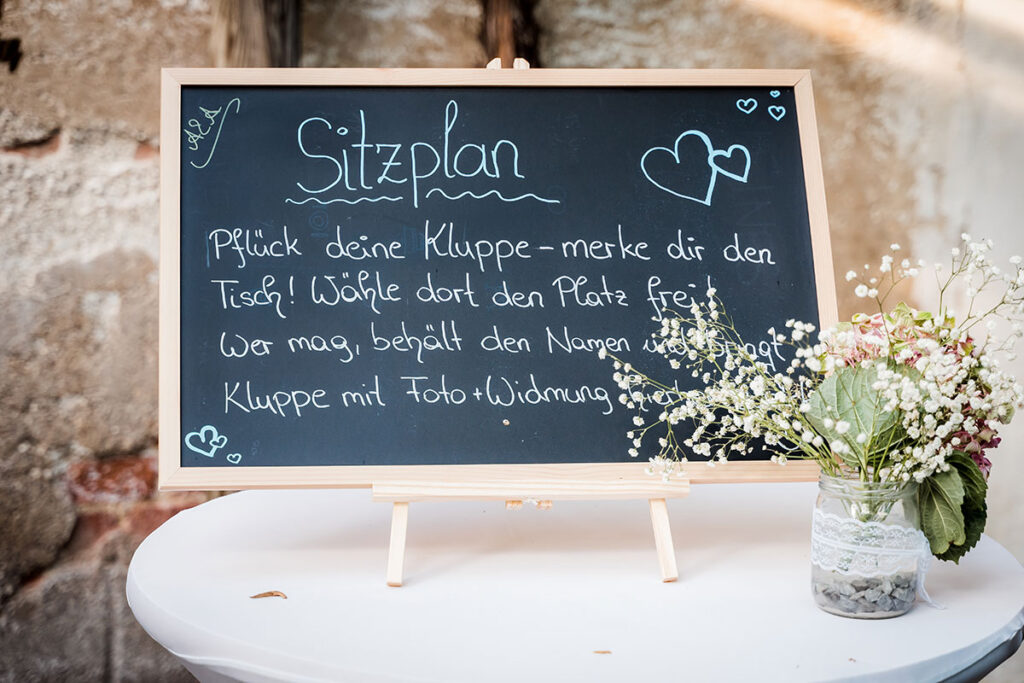 A&A
Sitzplan
Pflück deine Kluppe – merke dir den
Tisch! Wähle dort den Platz frei!
Wer mag, behält den Namen und bringt
Kluppe mit Foto + Widmung